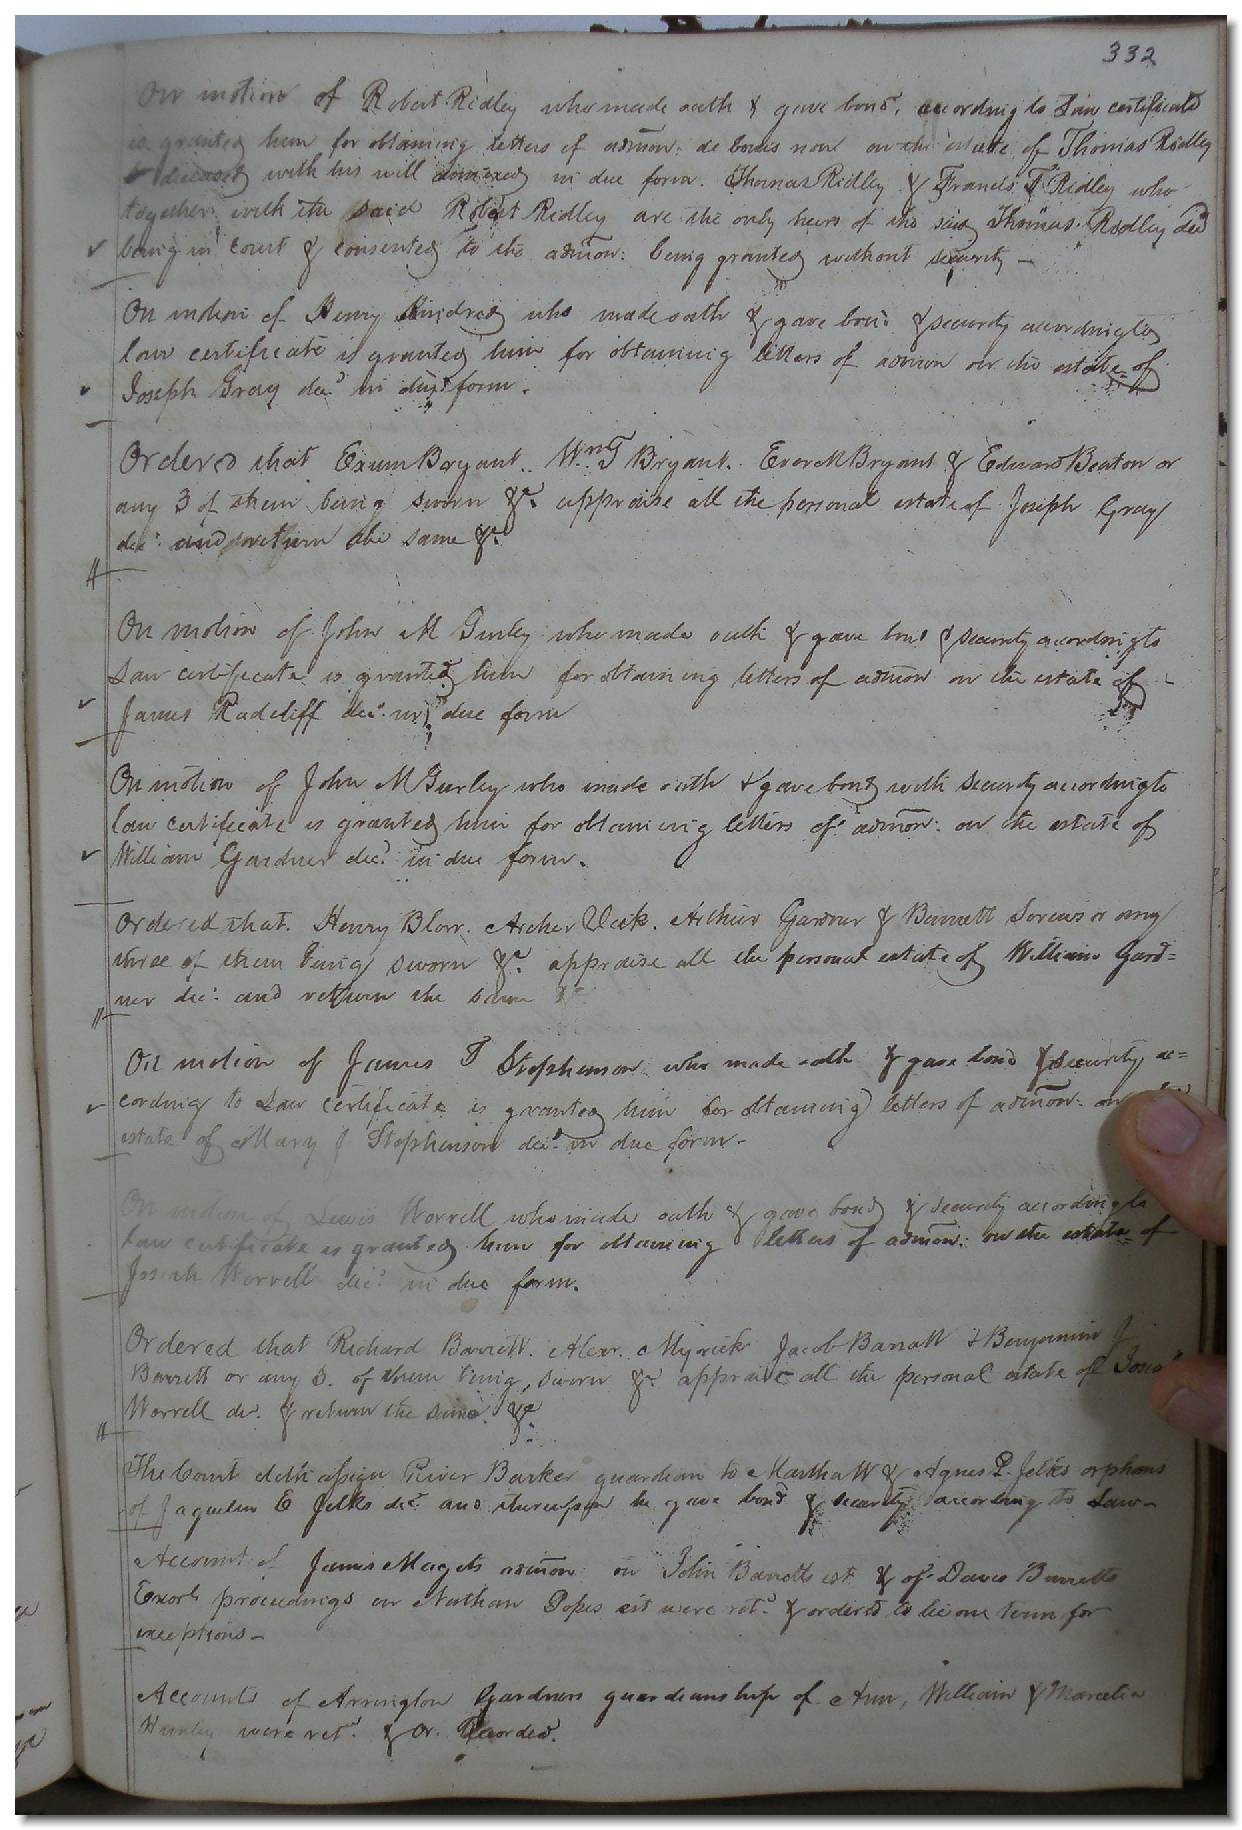 332
On motion of Robert Ridley who made oath & gave bond, according to Law certificate
is granted him for obtaining letters of admon: de bonis non on the estate of Thomas Ridley
deceased with his will annexed in due form. Thomas Ridley & Francis T Ridley who
together with the said Robert Ridley are the only heirs of the said Thomas Ridley decd
being in Court & consented to the admon: being granted without security —
On motion of Henry Kindred who made oath & gave bond & security according to
law certificate is granted him for obtaining letters of admon on the estate of
Joseph Gray decd in due form.
Ordered that Exum Bryant. Wm T Bryant. Everett Bryant & Edward Beaton or
any 3 of them being sworn &c. appraise all the personal estate of Joseph Gray
decd: and return the same &c
On motion of John M Gurley who made oath & gave bond & security according to
Law certificate is granted him for obtaining letters of admon on the estate of
James Radcliff decd. in due form
On motion of John M Gurley who made oath & gave bond with security according to
law certificate is granted him for obtaining letters of admon: on the estate of
William Gardner decd. in due form.
Ordered that. Henry Blow. Archer Arthur Gardner & Bennett or any
three of them being sworn &c. appraise all the personal estate of William Gard=
ner decd: and return the same &c
On motion of James T Stephenson who made oath & gave bond & security, ac=
cording to Law certificate is granted him for obtaining letters of admon: on
estate of Mary J Stephenson decd. in due form-
On motion of Lewis Worrell who made oath & gave bond & security according to
law certificate is granted him for obtaining letters of admon: on the estate of
Josiah Worrell decd in due form.
Ordered that Richard Barrett. Alexr. Myrick Jacob Barratt & Benjamin J
Barrett or any 3. of them being, sworn &c appraise all the personal estate of
Worrell de. & return the same. &c
The Court doth assign River Barker guardian to Martha W & Agnes P. Jelks orphans
of Jaquelin E Jelks decd. and thereupon he gave bond & security according to Law-
Account of James Magets admon: on John Barretts est & of Davis Barretts
Exors proceedings on Nathan Popes est were retd. & ordered to lie one term for
exceptions-
Accounts of Arrington Gardners guardianship of Ann, William & Marcelia
were retd. & Or. Recorded.